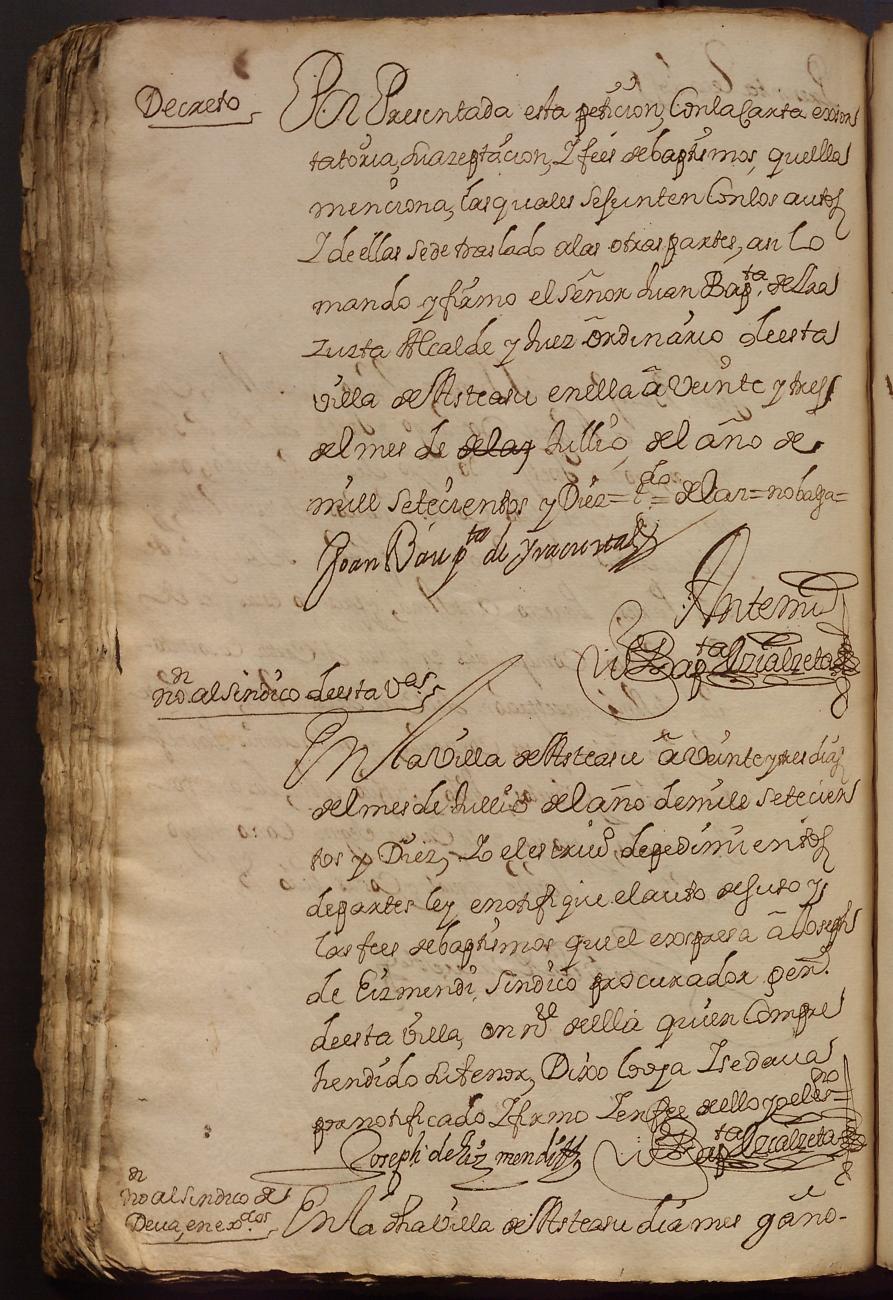 Decreto
Por Presentada esta peticion, Con la Carta exsor
tatoria, su azeptacion, Y fees de baptismos, que ella
menciona, las quales se Junten Con los autos
Y de ellas se de traslado a las otras partes, assi Lo
mando y firmo el Señor Juan Bapta. de
Alcalde y Juez ordinario de esta
villa de Asteasu en ella â Veinte y tres
del mes de Jullio, del año de
mill setecientos y Diez= tdo= = no balga=
Joan Baupta de Yracusta
Antemi
Bapta Yzialzeta
non. al sindico de esta Va.
En la Villa de Asteasu â Veinte y tres dias
del mes de Jullio del año de mill setecien
tos y Diez, Yo el escriuo de pedimiento
de partes ley e notifique el auto de suso y
las fees de baptismos que el exspresa â Joseph
de Eizmendi, sindico procurador gen.l
de esta villa, en ne. de ella quien Compre
hendido su tenor, Dixo lo oya Y se daua
por notificado Y firmo Y en fee de ello yo el esno=
Joseph de Eiz mendi
Bapta Yzialzeta
non al sindico de
Deua, en
En la dha Villa de Asteasu dia mes y año-